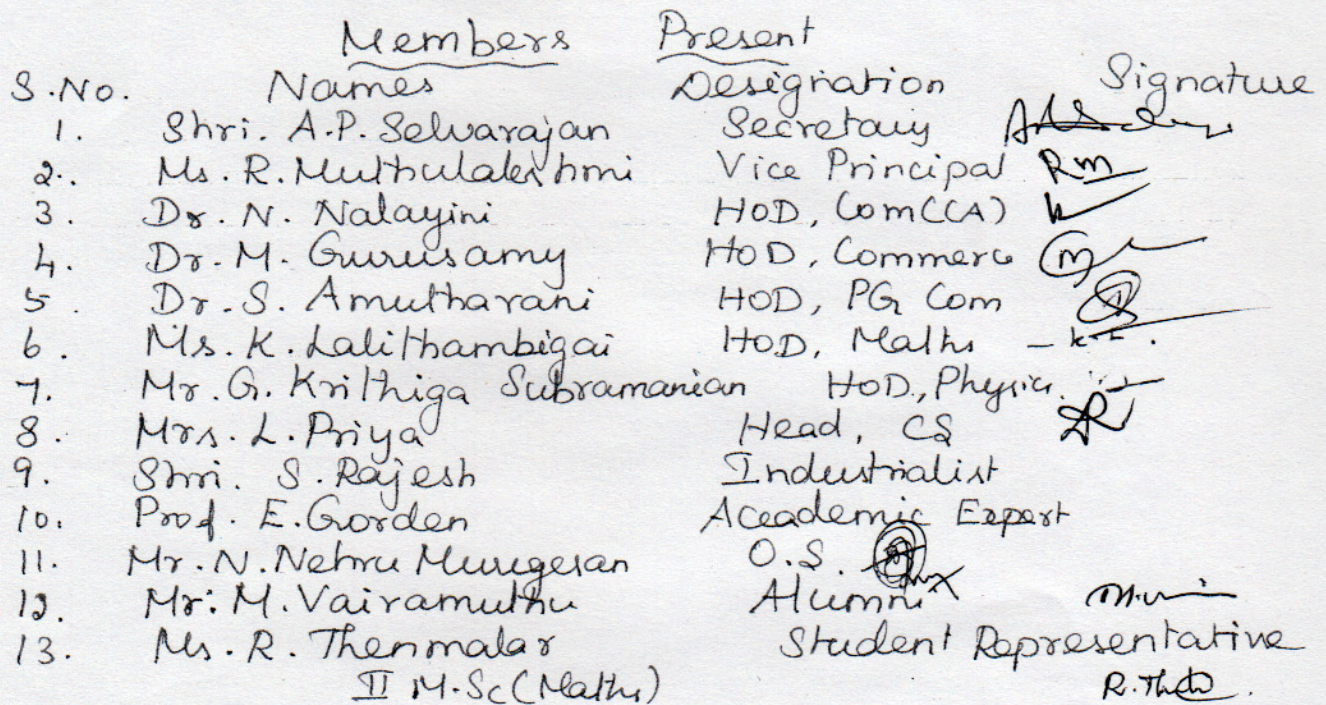 Members Present
S.No. Names Designation Signature
1. Shri. A.P. Selvarajan Secretary
2. Ms. R. Muthulakshmi Vice Principal Rm
3. Dr. N. Nalayini HOD, Com(CA)
4. Dr. M. Gurusamy HOD, Commerce
5 Dr. S. Amutharani HOD, PG Com
6. Ms. K. Lalithambigai HOD, Maths
7. Mr. G. Krithiga Subramanian HOD, Physics
8. Mrs. L. Priya Head, CS
9. Shri. S. Rajesh Industrialist
10. Prof. E. Gorden Aceademic Expert
11. Mr. N. Nehru Murugesan O.S.
12. Mr. M. Vairamuthu Alumni
13. Ms. R. Thenmalar Student Representative
II M.Sc (Maths)